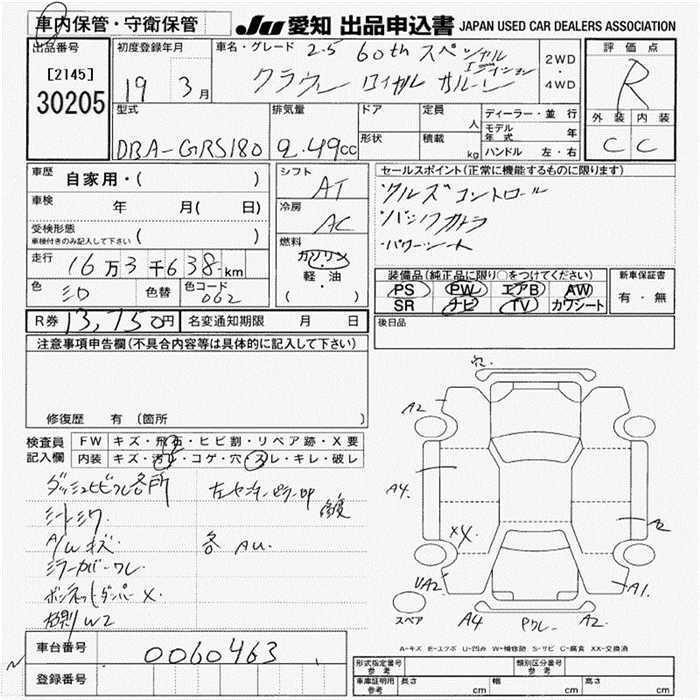 車内保管・守衛保管
JU 愛知 出品申込書 JAPAN USED CAR DEALERS ASSOCIATION
出品番号
[2145]
30205
初度登録年月
19 3月
車名・グレード 2.5 60th スペシャル
クラウン ロイヤル サルーン
2WD
・
4WD
評価点
R
外装 内装
C C
型式
DBA-GRS180
排気量
2.49cc
ドア
形状
定員
人
積載
kg
ディーラー・並行
モデル年式 年
ハンドル 左・右
車歴
自家用・( )
車検
年 月( 日)
受検形態
車検付きのみ記入して下さい ( )
走行
16万3千638km
色
シロ
色替
色コード
062
シフト
AT
冷房
AC
燃料
ガソリン
・
軽・油
( )
セールスポイント(正常に機能するものに限ります)
クルーズコントロール
・バックカメラ
・パワーシート
装備品(純正品に限り○をつけてください)
PS PW エアB AW
SR ナビ TV カワシート
新車保証書
有・無
後日品
R券
13,750円
名変通知期限 月 日
注意事項申告欄(不具合内容等は具体的に記入して下さい)
修復歴 有 (箇所 )
検査員
記入欄
FW キズ・飛石・ヒビ割・リペア跡・X要
内装 キズ・汚レ・コゲ・穴・スレ・キレ・破レ
ダッシュヒビワレ各所
シートシワ
A/Wキズ
ミラーカバーワレ
ボンネットダンパーX
左センターピラー凹
修復
各AU
W2
A2
A4
XX
A2
UA2
A1
A4
Pワレ
A2
スペア
A-キズ E-エクボ U-凹み W-補修跡 S-サビ C-腐食 XX-交換済
車台番号
0060463
登録番号
形式指定番号
参考
類別区分番号
参考
車庫証明用
参考
長さ cm
幅 cm
高さ cm